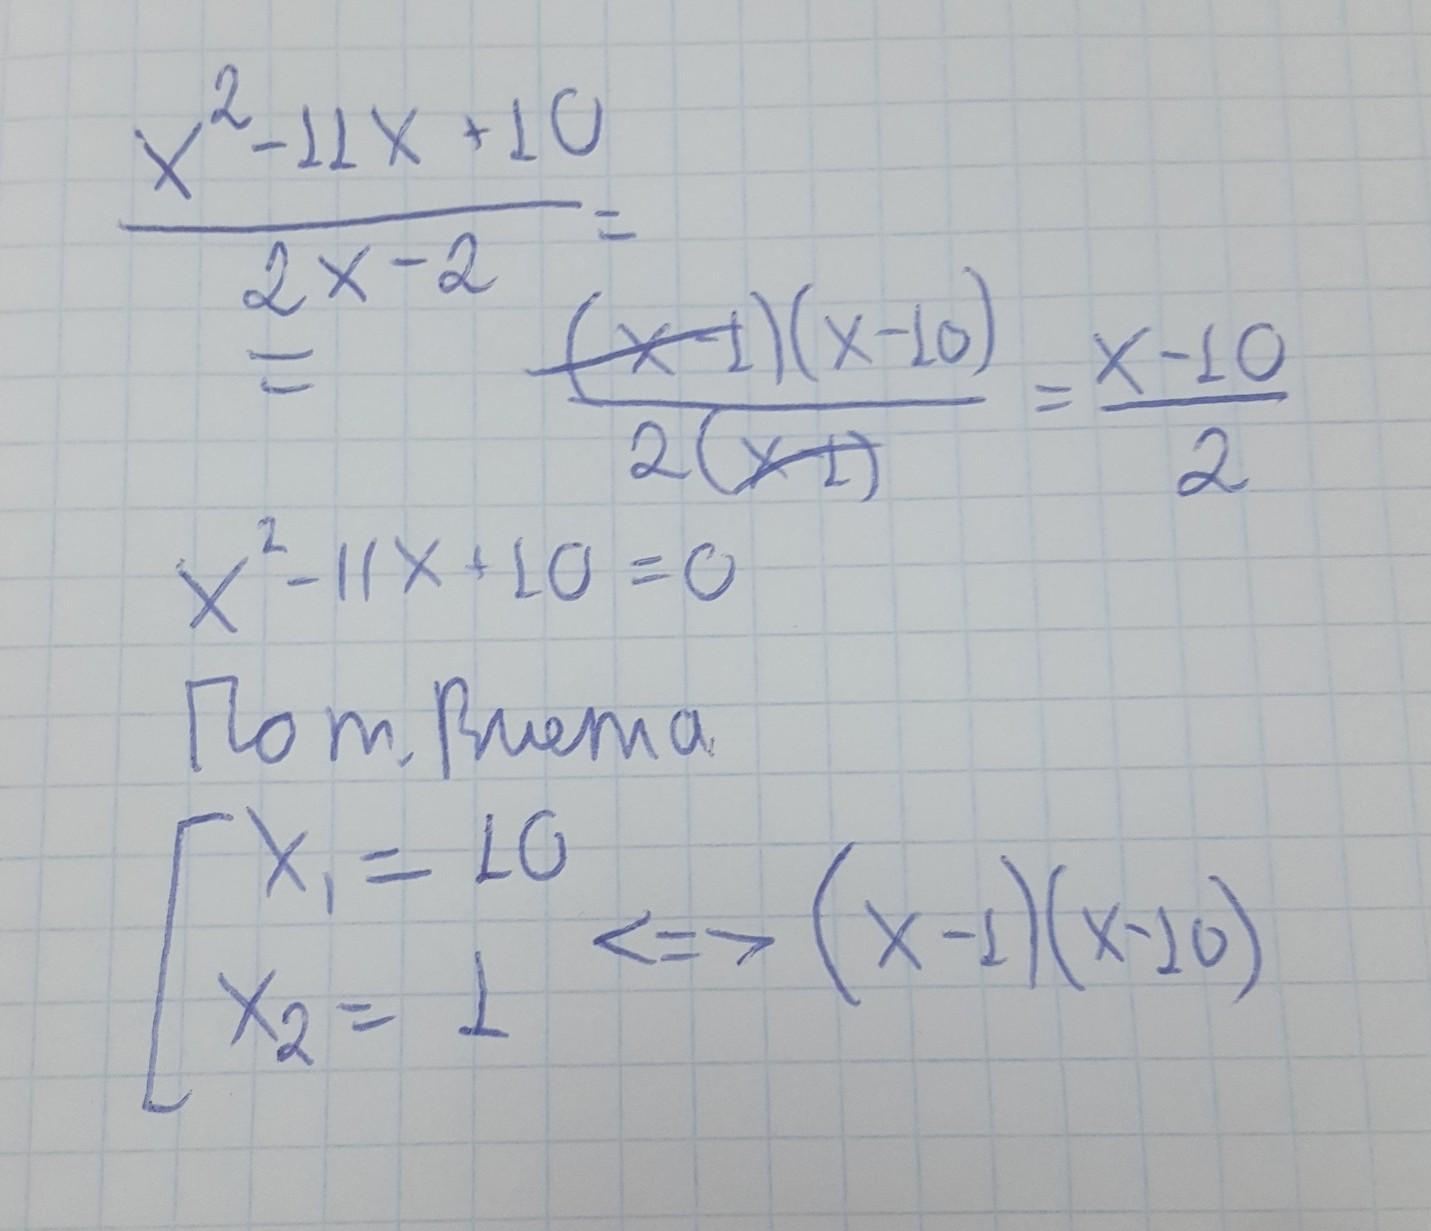 x² - 11x + 10
2x - 2 =
= (x-1)(x-10) / 2(x-1) = x-10 / 2
x² - 11x + 10 = 0
По т. Виета
[ x₁ = 10
x₂ = 1 <=> (x-1)(x-10)